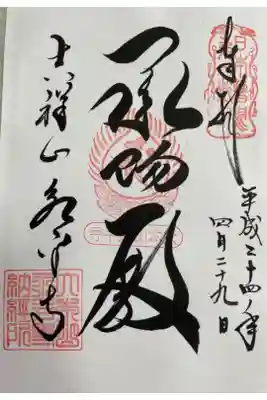 奉拝
平成二十四年
四月二十九日
承陽殿
吉祥山永平寺
大本山
永平寺
納経所